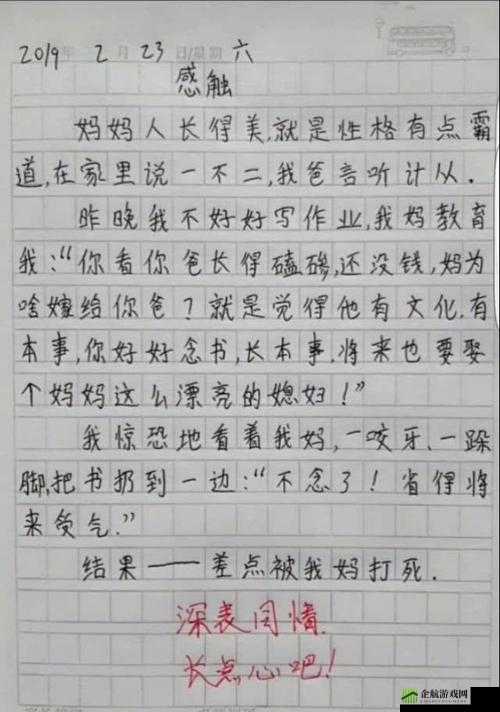 2019年 2月 23日/星期 六
感触
妈妈人长得美,就是性格有点霸
道,在家里说一不二,我爸言听计从.
昨晚我不好好写作业,我妈教育
我:“你看你爸长得磕碜,还没钱,妈为
啥嫁给你爸?就是觉得他有文化.有
本事,你好好念书,长本事.将来也要娶
个妈妈这么漂亮的媳妇!”
我惊恐地看着我妈,一咬牙、一跺
脚,把书扔到一边:“不念了!省得将
来受气.”
结果——差点被我妈打死.
深表同情.
长点心吧!
企航游戏网